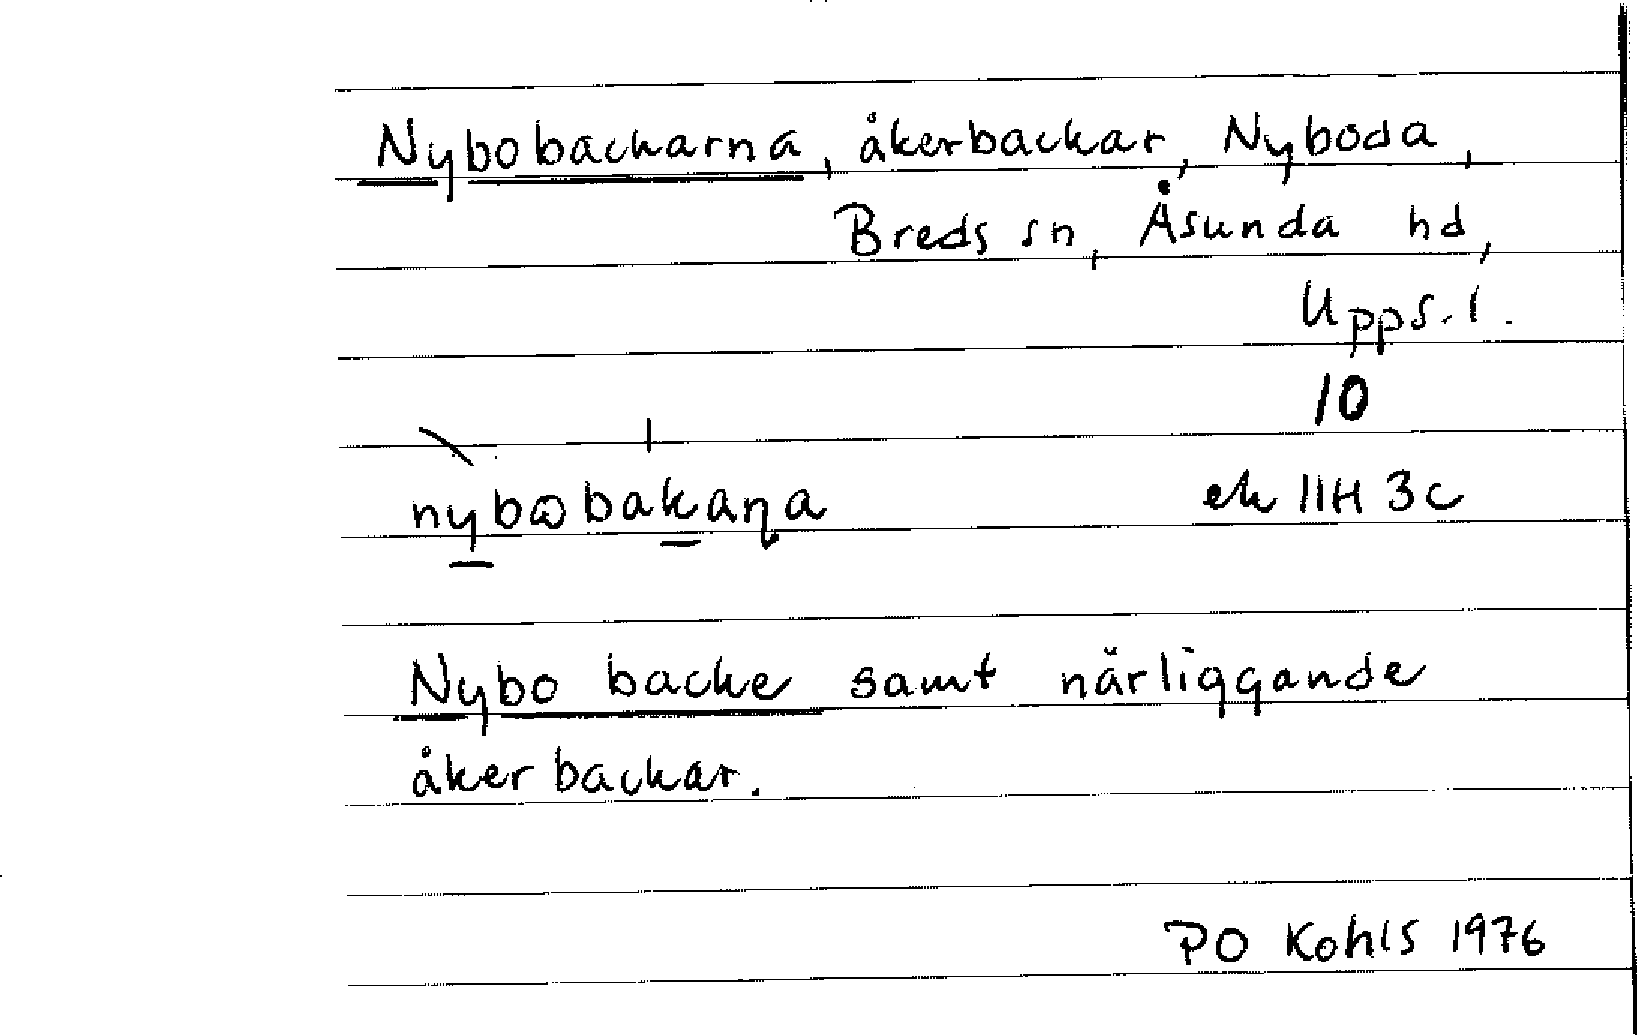 Nybobackarna, åkerbackar, Nyboda,
Breds sn, Åsunda hd,
Upps. l.
10
nybωbakaɳa ek 11H 3c
Nybo backe samt närliggande
åkerbackar.
PO Kohls 1976